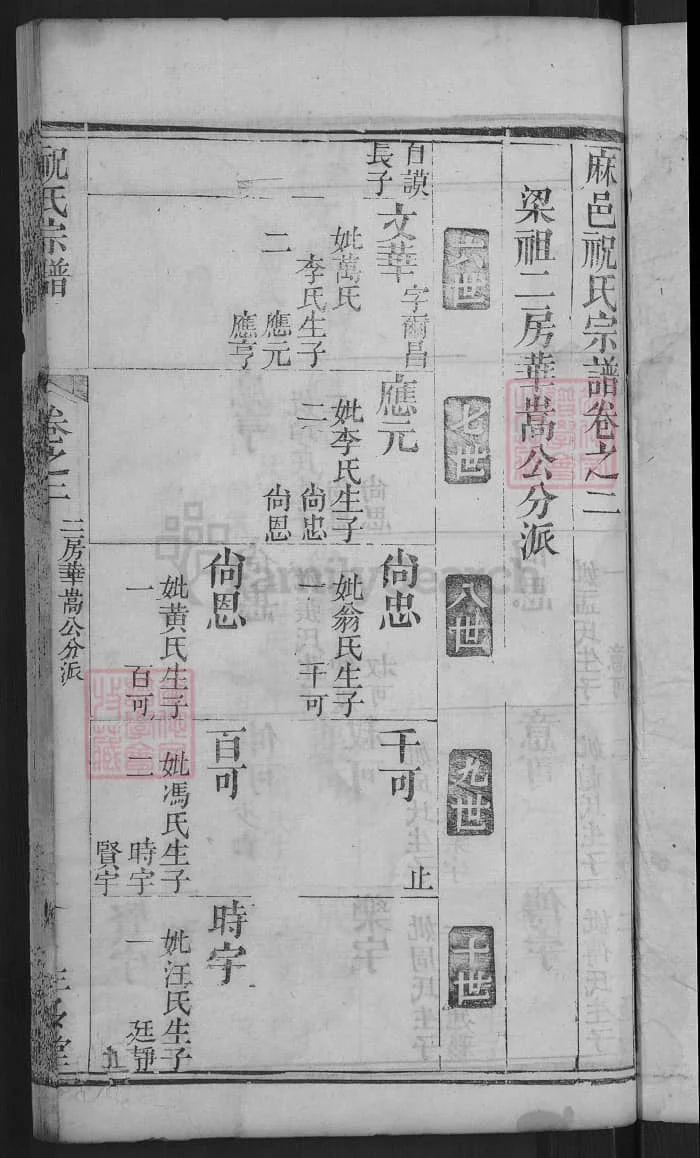 麻邑祝氏宗譜卷之二
梁祖二房華嵩公分派
六世
七世
八世
九世
十世
百謨
長子
文華 字爾昌
妣萬氏
李氏生子
二 應元
應亨
應元
妣李氏生子
二 尙忠
尙恩
尙忠
妣翁氏生子
一 千可
千可
止
尙恩
妣黃氏生子
一 百可
百可
妣馮氏生子
二 時宇
賢宇
時宇
妣汪氏生子
一 廷靜
祝氏宗譜
卷之二
二房華嵩公分派
FamilySearch